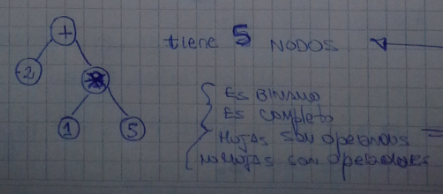 +
tiene 5 NODOS
2
*
1 5
ES BINARIO
ES COMPLETO
HOJAS SON OPERANDOS
NO HOJAS SON OPERADORES